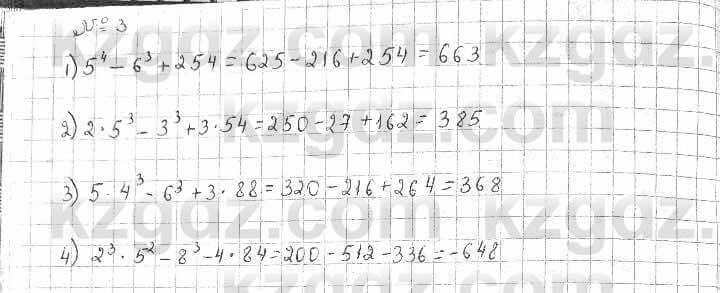 № 3
1) 5⁴ - 6³ + 254 = 625 - 216 + 254 = 663
2) 2 · 5³ - 3³ + 3 · 54 = 250 - 27 + 162 = 385
3) 5 · 4³ - 6³ + 3 · 88 = 320 - 216 + 264 = 368
4) 2³ · 5² - 8³ - 4 · 84 = 200 - 512 - 336 = -648
kzgdz.com
kzgdz.com
kzgdz.com
kzgdz.com